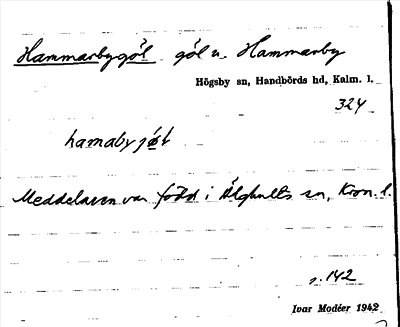 Hammarbygöl göl v. Hammarby
Högsby sn, Handbörds hd, Kalm. l.
324
hamabyjøl
Meddelaren var född i Älghults sn, Kron. l.
s. 142
Ivar Modéer 1942